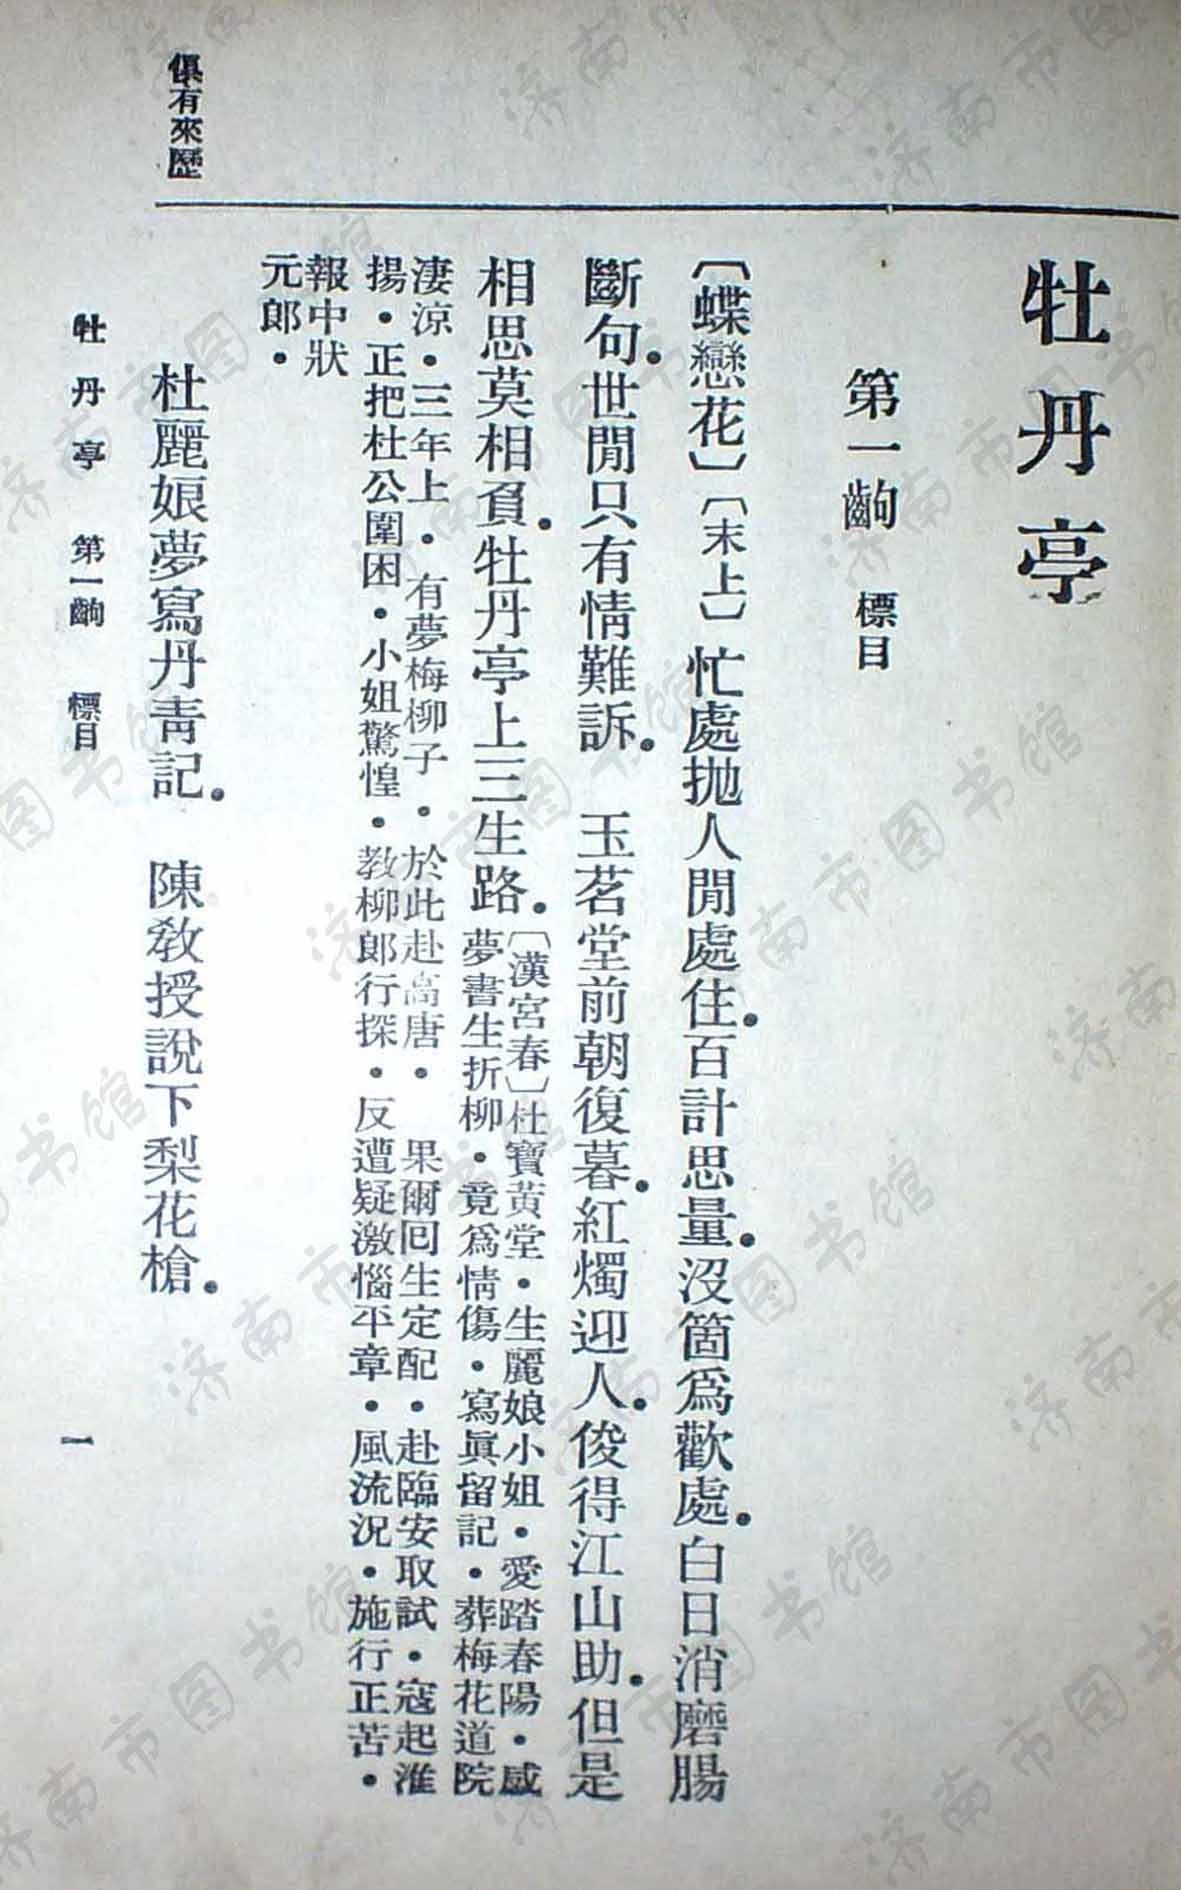 牡丹亭
第一齣 標目
〔蝶戀花〕〔末上〕忙處拋人閒處住．百計思量．沒箇爲歡處．白日消磨腸
斷句．世閒只有情難訴． 玉茗堂前朝復暮．紅燭迎人．俊得江山助．但是
相思莫相負．牡丹亭上三生路．
〔漢宮春〕杜寶黃堂・生麗娘小姐・愛踏春陽・感
夢書生折柳・竟爲情傷・寫眞留記・葬梅花道院
淒涼・三年上・有夢梅柳子・於此赴高唐・果爾回生定配・赴臨安取試・寇起淮
揚・正把杜公圍困・小姐驚惶・教柳郎行探・反遭疑激惱平章・風流況・施行正苦・
報中狀
元郎・
俱有來歷
杜麗娘夢寫丹青記． 陳教授說下梨花槍．
牡丹亭 第一齣 標目 一
济南市图书馆